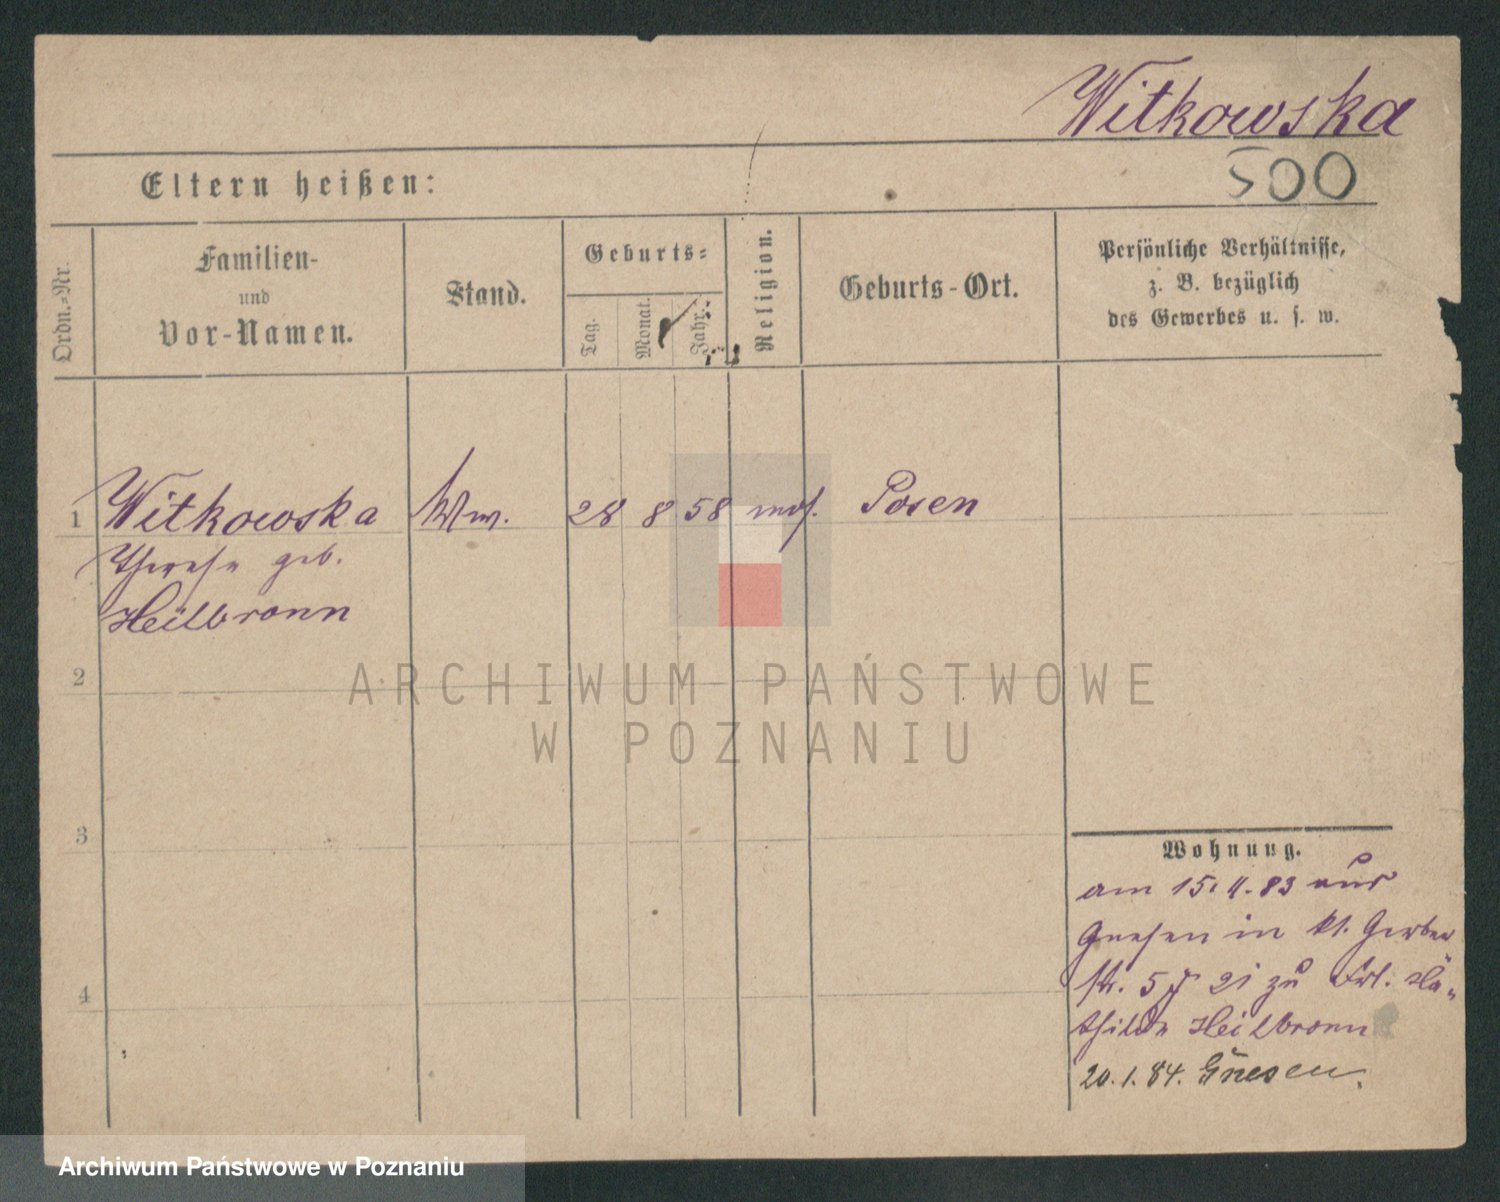 Witkowska
500
Eltern heißen:
Ordn.-Nr.
Familien-
und
Vor-Namen.
Stand.
Geburts-
Tag.
Monat.
Jahr.
Religion.
Geburts-Ort.
Persönliche Verhältnisse,
z. B. bezüglich
des Gewerbes u. s. w.
1 Witkowska Ww. 28 8 58 mos. Posen
Therese geb.
Heilbronn
2
ARCHIWUM PAŃSTWOWE
W POZNANIU
3
4
Wohnung.
am 15. 4. 83 aus
Gnesen in kl. Gerber
str. 5 zu Frl.
Heilbronn
20.1.84. Gnesen.
Archiwum Państwowe w Poznaniu